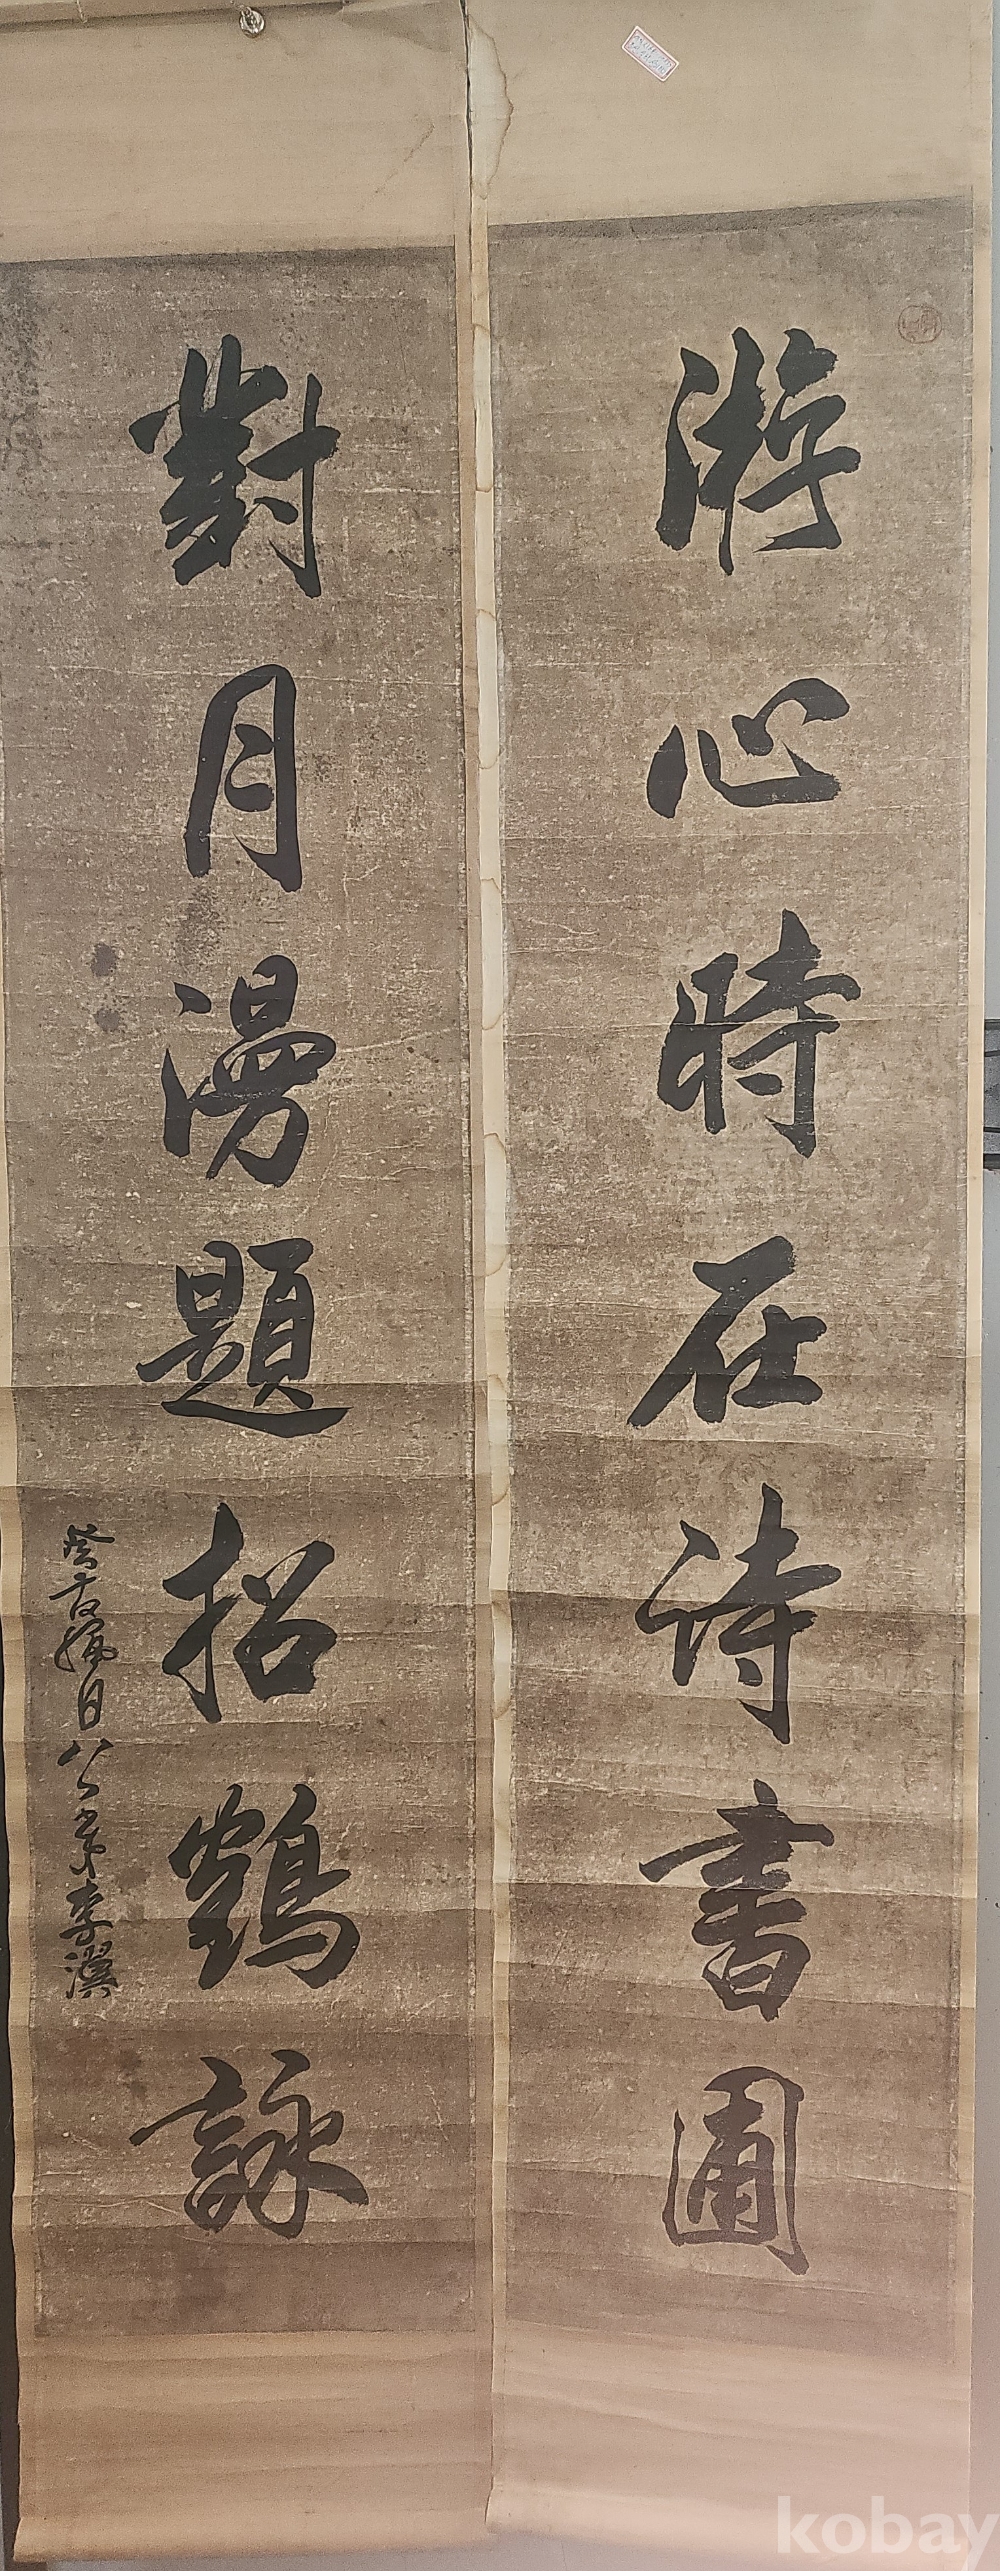 游心時在诗書圃
對月漫題招鶴詠
日八
李瀷
kobay